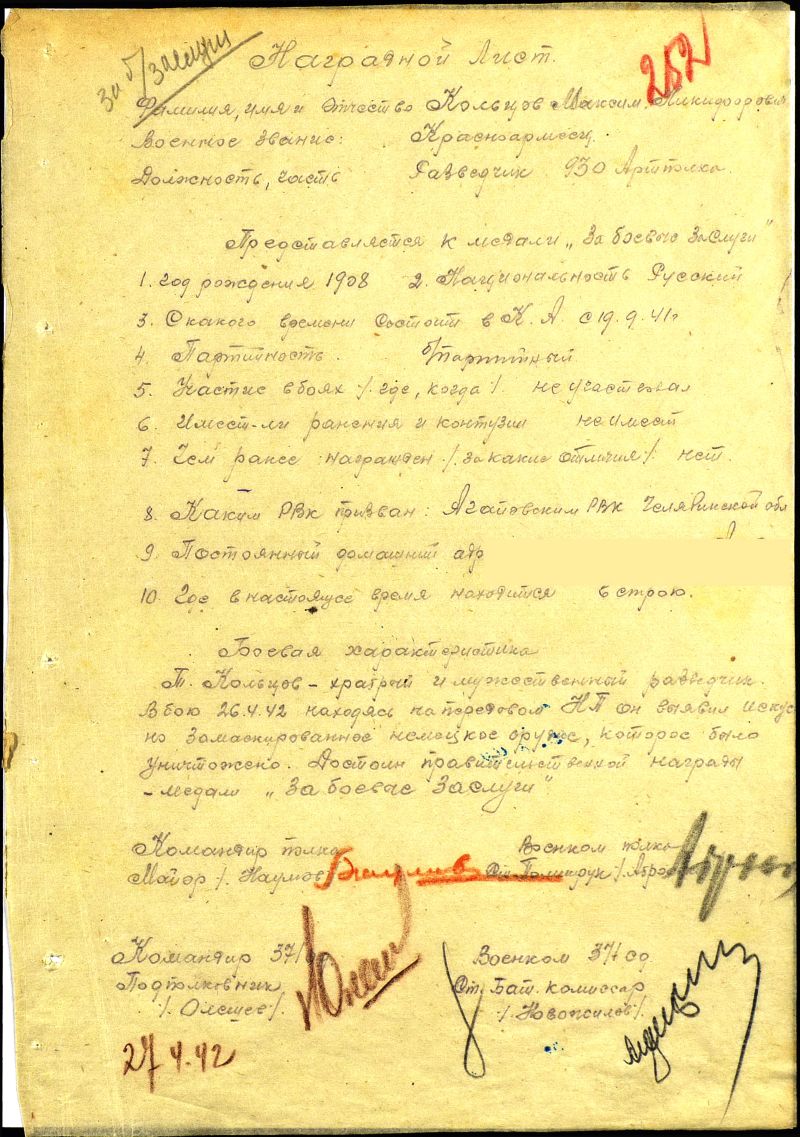 За б/заслуги
Наградной Лист.
252
Фамилия, имя и Отчество Кольцов Максим Никифорович
Военное звание: Красноармеец.
Должность, часть Разведчик 930 Артполка.
Представляется к медали „За боевые заслуги"
1. Год рождения 1908 2. Национальность Русский
3. С какого времени состоит в К.А. с 19.9.41г
4. Партийность. б/партийный
5. Участие в боях /. где, когда /. не участвовал
6. Имеет-ли ранения и контузии не имеет
7. Чем ранее награжден /. за какие отличия /. нет.
8. Каким РВК призван: Агаповским РВК Челябинской обл
9. Постоянный домашний адр
10. Где в настоящее время находится в строю.
Боевая характеристика
Т. Кольцов – храбрый и мужественный разведчик.
В бою 26.4.42 находясь на передовом НП он выявил искус
но замаскированное немецкое орудие, которое было
уничтожено. Достоин правительственной награды
– медали „За боевые заслуги"
Командир полка Военком полка
Майор /. Наумов Ст. Политрук /
Командир 371 сд Военком 371 сд.
Подполковник Ст. Бат. комиссар
/. Олешев /. /. Новожилов /.
27.4.42